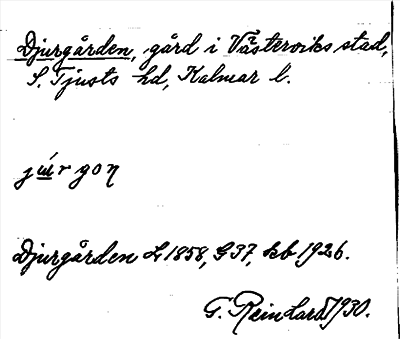 Djurgården, gård i Västerviks stad,
S. Tjusts hd, Kalmar l.
Djurgården L 1858, G37, kb 1926.
G. Reinhard 1930.